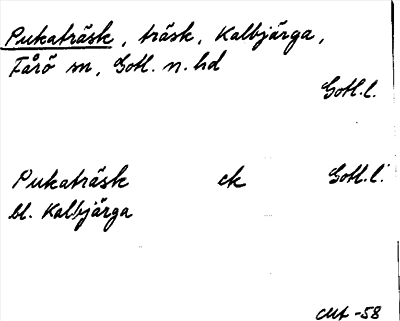 Pukaträsk, träsk, Kalbjärga,
Fårö sn, Gotl. n. hd
Gotl. l.
Pukaträsk ek Gotl. l.
bl. Kalbjärga
-58